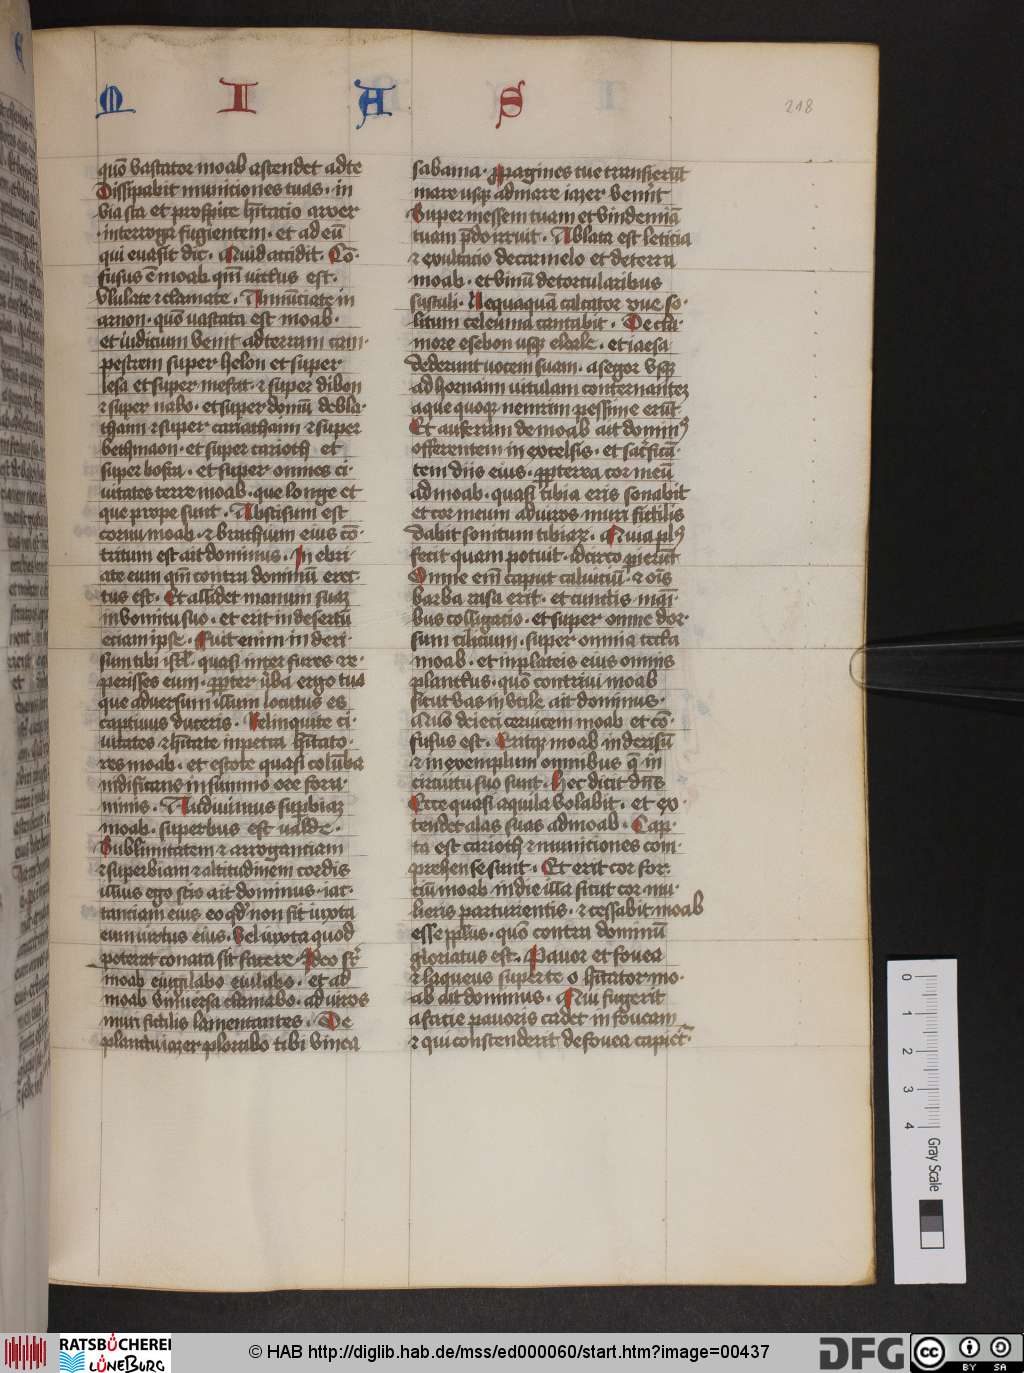 M I A S
218
quō vastator moab ascendet adte
Dissipabit municiones tuas · in
via sta et prospice hītatio aroer
· interroga fugientem · et ad eū
qui evasit dic · Quid accidit · Cō
fusus ē moab qm̄ victus est ·
vlulate ⁊ clamate · Annūciate in
arnon · quō vastata est moab ·
et iudicium venit ad terram cam
pestrem super helon et super
iesa et super mefat · ⁊ super dibon
⁊ super nabo · et super domū debla
thaim ⁊ super cariathaim ⁊ super
bethmaon · et super carioth et
super bosra · et super omnes ci
uitates terre moab · que longe et
que prope sunt · Abscisum est
cornu moab · ⁊ brachium eius cō
tritum est ait dominus · In ebri
ate eum qm̄ contra dominū erec
tus est · Et allidet manum suaꝫ
in vomitu suo · et erit in desertū
eciam ipse · Fuit enim in deri
sum tibi isrl̄ · quasi inter fures re
perisses eum · ꝓpter v̄ba ergo tua
que adversum illum locutus es
captiuus duceris · Relinquite ci
uitates ⁊ hītate in petra hītato
res moab · et estote quasi colūba
nidificans in summo ore fora
minis · Audiuimus suꝑbiaꝫ
moab · superbus est valde ·
Sublimitatem ⁊ arrogantiam
⁊ superbiam ⁊ altitudinem cordis
illius ego scio ait dominus · iac
tantiam eius eo qd̄ non sit iuxta
eum virtus eius · Vel iuxta quod
poterat conata sit facere · Ideo sr̄
moab eiugilabo eiulabo · et ad
moab vniuersa clamabo · ad viros
muri fictilis lamentantes · De
planctu iazer plorabo tibi vinea
sabama · ꝓpagines tue transierūt
mare usqꝫ ad mare iazer venīt
Super messem tuam et vindemiā
tuam p̄do irruit · Ablata est leticia
⁊ exultacio de carmelo et de terra
moab · et vinū de torcularibus
sustuli · Nequaquā calcator vue so
litum celeuma cantabit · De cla
more esebon usqꝫ eleale · et iaesa
dederunt vocem suam · a segor vsqꝫ
ad horoaim vitulam conternanteꝫ
aque quoqꝫ nemrim pessime erūt
Et auferam de moab ait dominꝰ
offerentem in excelsis · et sacͥficā
tem diis eius · ꝓpterea cor meū
ad moab · quasi tibia eris sonabit
et cor meum ad viros muri fictilis
dabit sonitum tibiaꝝ · Quia plꝰ
fecit quam potuit · idcirco ꝑierūt
Omne em̄ caput caluiciū · ⁊ oīs
barba rasa erit · et cunctis maī
bus colligacio · et super omne dor
sum cilicium · super omnia tecta
moab · et in plateis eius omnis
planctus · quō contriui moab
sicut vas inutile ait dominus ·
Quō deieci ceruicem moab et cō
fusus est · Eritqꝫ moab in derisū
⁊ in exemplum omnibus q̄ in
circuitu suo sunt · Hec dicit dn̄s
Ecce quasi aquila volabit · et ex
tendet alas suas ad moab · Cap
ta est carioth ⁊ municiones com
prehense sunt · Et erit cor for
tiū moab in die illa sicut cor mu
lieris parturientis · ⁊ cessabit moab
esse ppl̄us · quō contra dominū
gloriatus est · Pavor et fovea
⁊ laqueus super te o hītator mo
ab ait dominus · Qui fugerit
a facie pavoris cadet in foueam
⁊ qui conscenderit de fovea capiet̄
0 1 2 3 4
Gray Scale
RATSBÜCHEREI
LÜNEBURG
© HAB http://diglib.hab.de/mss/ed000060/start.htm?image=00437
DFG
cc BY SA